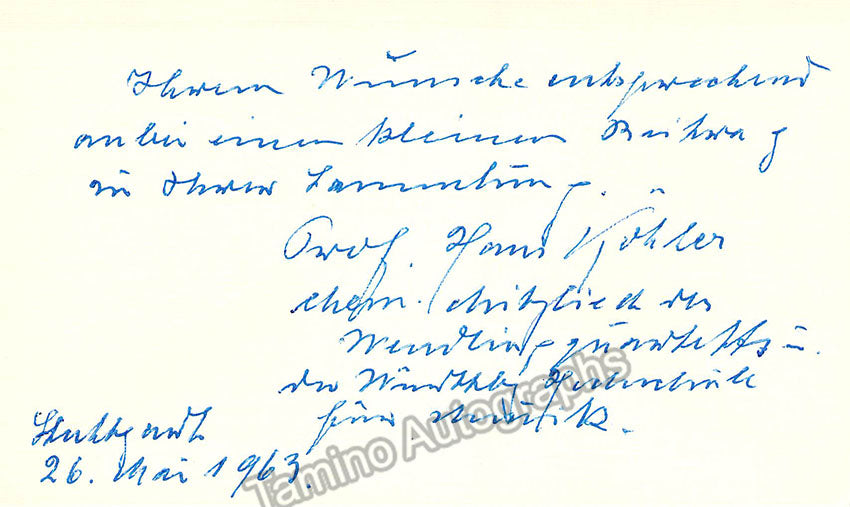 Ihrem Wunsche entsprechend
anbei einen kleinen Beitrag
zu Ihrer Sammlung.
Prof. Hans Köhler
ehem. Mitglied des
Wendlingquartetts u.
der Württbg Hochschule
für Musik.
Stuttgart
26. Mai 1963.
Tamino Autographs